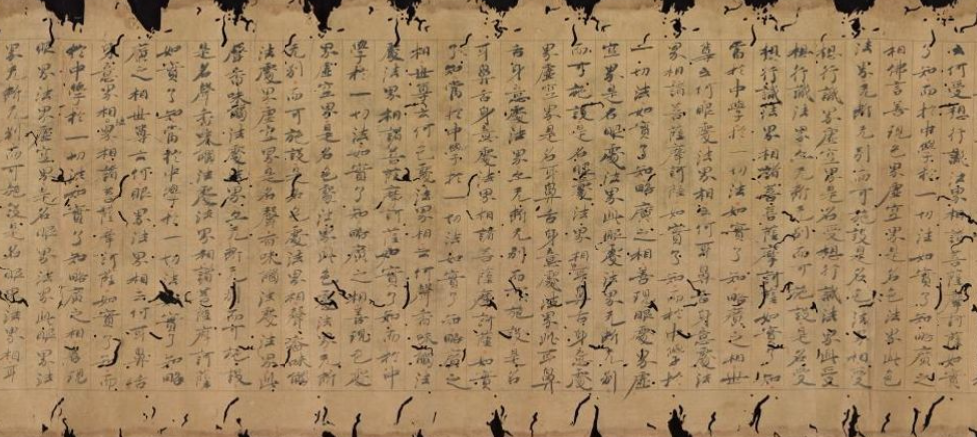 云何受想行識法界相諸菩薩摩訶薩如實
了知而於中學於一切法如實了知略廣之
相佛言善現色界虛空界是名色法界此色
法界无斷无別而可施設是名色法界相受
想行識界虛空界是名受想行識法界此受
想行識法界亦无斷无別而可施設是名受
想行識法界相諸菩薩摩訶薩如實了知
當於中學於一切法如實了知略廣之相世
尊云何眼處法界相云何耳鼻舌身意處法
界相諸菩薩摩訶薩如實了知而於中學於
一切法如實了知略廣之相善現眼處界虛
空界是名眼處法界此眼處法界无斷无別
而可施設是名眼處法界相耳鼻舌身意處
界虛空界是名耳鼻舌身意處法界此耳鼻
舌身意處法界亦无斷无別而可施設是名
耳鼻舌身意處法界相諸菩薩摩訶薩如實
了知當於中學於一切法如實了知略廣之
相世尊云何色處法界相云何聲香味觸法
處法界相諸菩薩摩訶薩如實了知而於中
學於一切法如實了知略廣之相善現色處
界虛空界是名色處法界此色處法界无斷
无別而可施設是名色處法界相聲香味觸
法處界虛空界是名聲香味觸法處法界此
聲香味觸法處法界亦无斷无別而可施設
是名聲香味觸法處法界相諸菩薩摩訶薩
如實了知當於中學於一切法如實了知略
廣之相世尊云何眼界法界相云何耳鼻舌
身意界法界相諸菩薩摩訶薩如實了知而
於中學於一切法如實了知略廣之相善現
眼界法界虛空界是名眼界法界此眼界法
界无斷无別而可施設是名眼界法界相耳